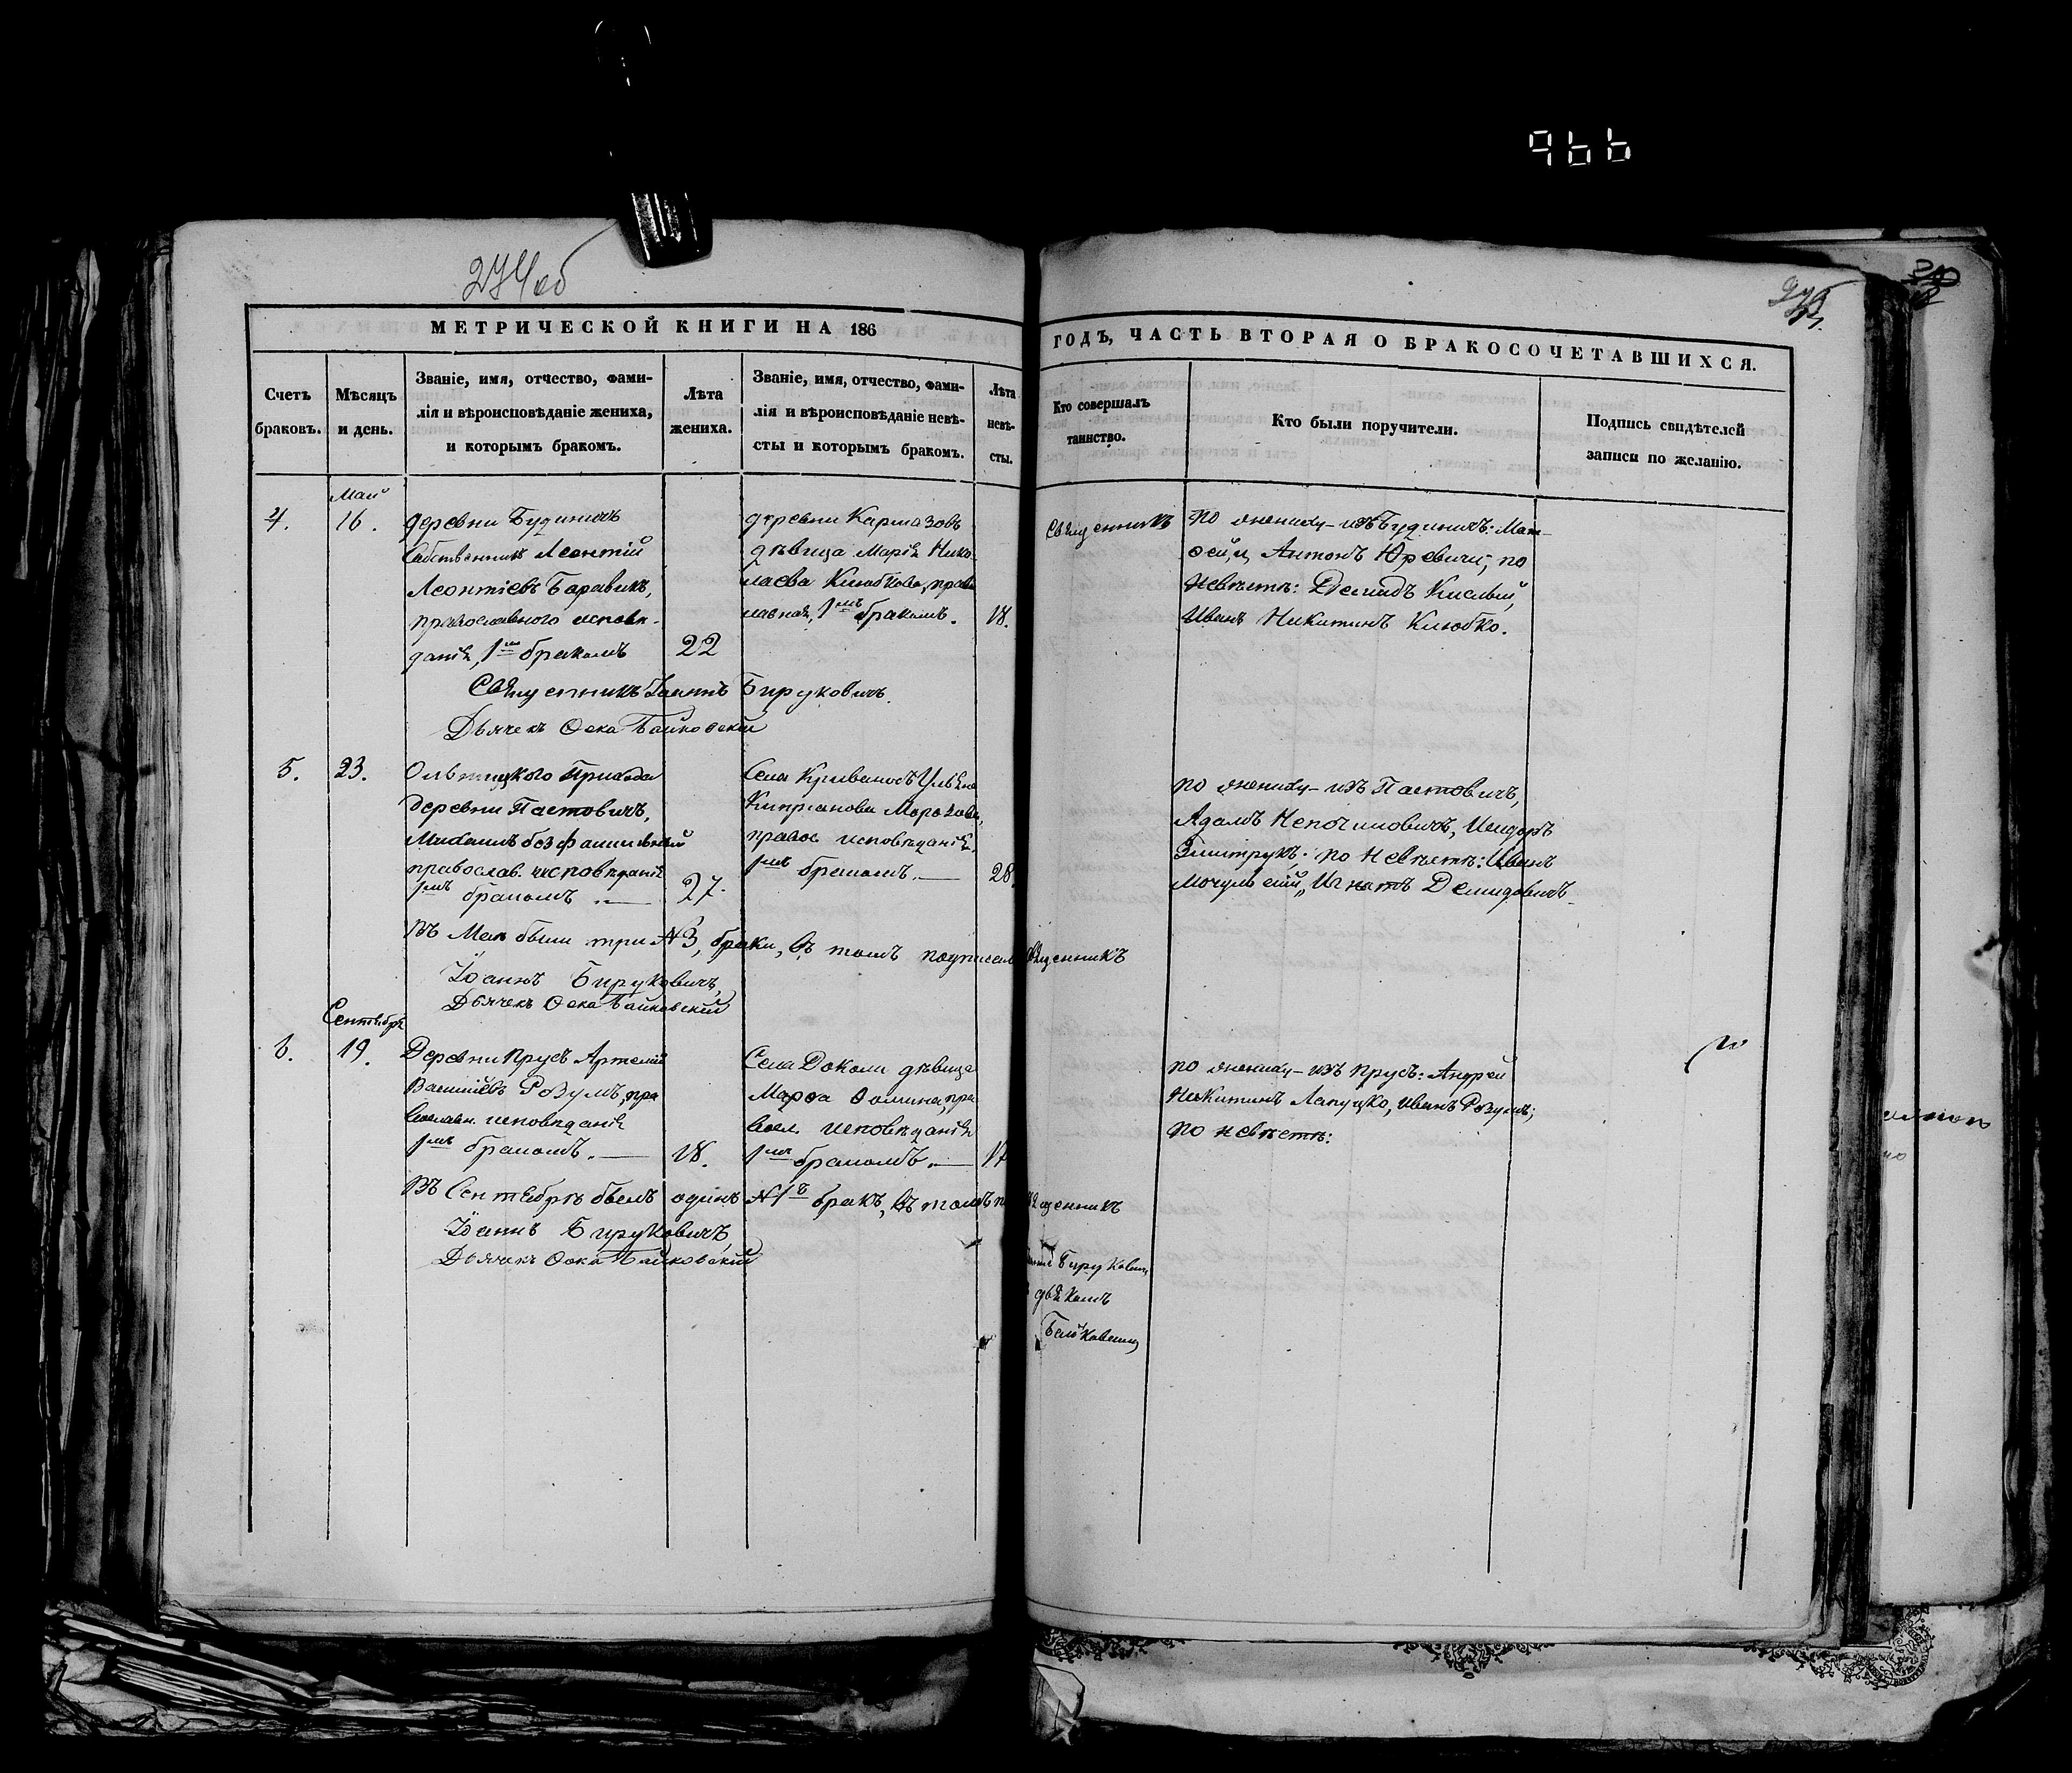 966
274об
275
МЕТРИЧЕСКОЙ КНИГИ НА 186
ГОДЪ, ЧАСТЬ ВТОРАЯ О БРАКОСОЧЕТАВШИХСЯ.
Счетъ
браковъ.
Мѣсяцъ
и день.
Званіе, имя, отчество, фами-
лія и вѣроисповѣданіе жениха,
и которымъ бракомъ.
Лѣта
жениха.
Званіе, имя, отчество, фами-
лія и вѣроисповѣданіе невѣ-
сты и которымъ бракомъ.
Лѣта
невѣ-
сты.
Кто совершалъ
таинство.
Кто были поручители.
Подпись свидѣтелей
записи по желанію.
Май
4.
16.
деревни Будиничъ
Собственникъ Леонтій
Леонтіевъ Боравикъ,
православного исповѣ-
данія, 1мъ бракомъ
22
деревни Кармазовъ
дѣвица Марія Нико-
лаева Клюбкова, право
лавная, 1мъ бракомъ.
18.
Священникъ
по жениху - изъ Будиничъ: Мат-
фей, и Антонъ Юревичи; по
Невѣстѣ: Демидъ Кислый,
Иванъ Никитинъ Клюбко.
Священникъ Іоаннъ Бируковичъ.
Дьячекъ Фока Байковскій
5.
23.
прихода
деревни Пастовичъ,
Михаилъ безфамильный
православ. исповѣданія
1мъ бракомъ .—
27.
Села Ульяна
Кипріанова Морозова,
правос исповѣданія,
1мъ бракомъ.—
28.
по жениху - изъ Пастовичъ,
Адамъ
Змитрукъ; по Невѣстѣ: Иванъ
Игнатъ Демидовичъ.
Въ Маѣ были три №3, браки, въ томъ подписал священникъ
Іоаннъ Бируковичъ,
Дьячекъ Фока Байковскій
Сентябрь
6.
19.
Деревни Прусъ Артемій
Василіевъ Розумъ, пра
вославн. исповѣданія
1мъ бракомъ.—
18.
Села Доколи дѣвица
Марфа Фомина, пра
восл. исповѣданія
1мъ бракомъ.—
17
по жениху - изъ Прусъ: Андрей
Никитинъ Лапуцко, Иванъ Розумъ;
по невѣстѣ:
Въ Сентябрѣ былъ одинъ №1й бракъ, въ томъ священникъ
Іоаннъ Бируковичъ,
Дьячекъ Фока Байковскій
Бируковичъ
дьякомъ